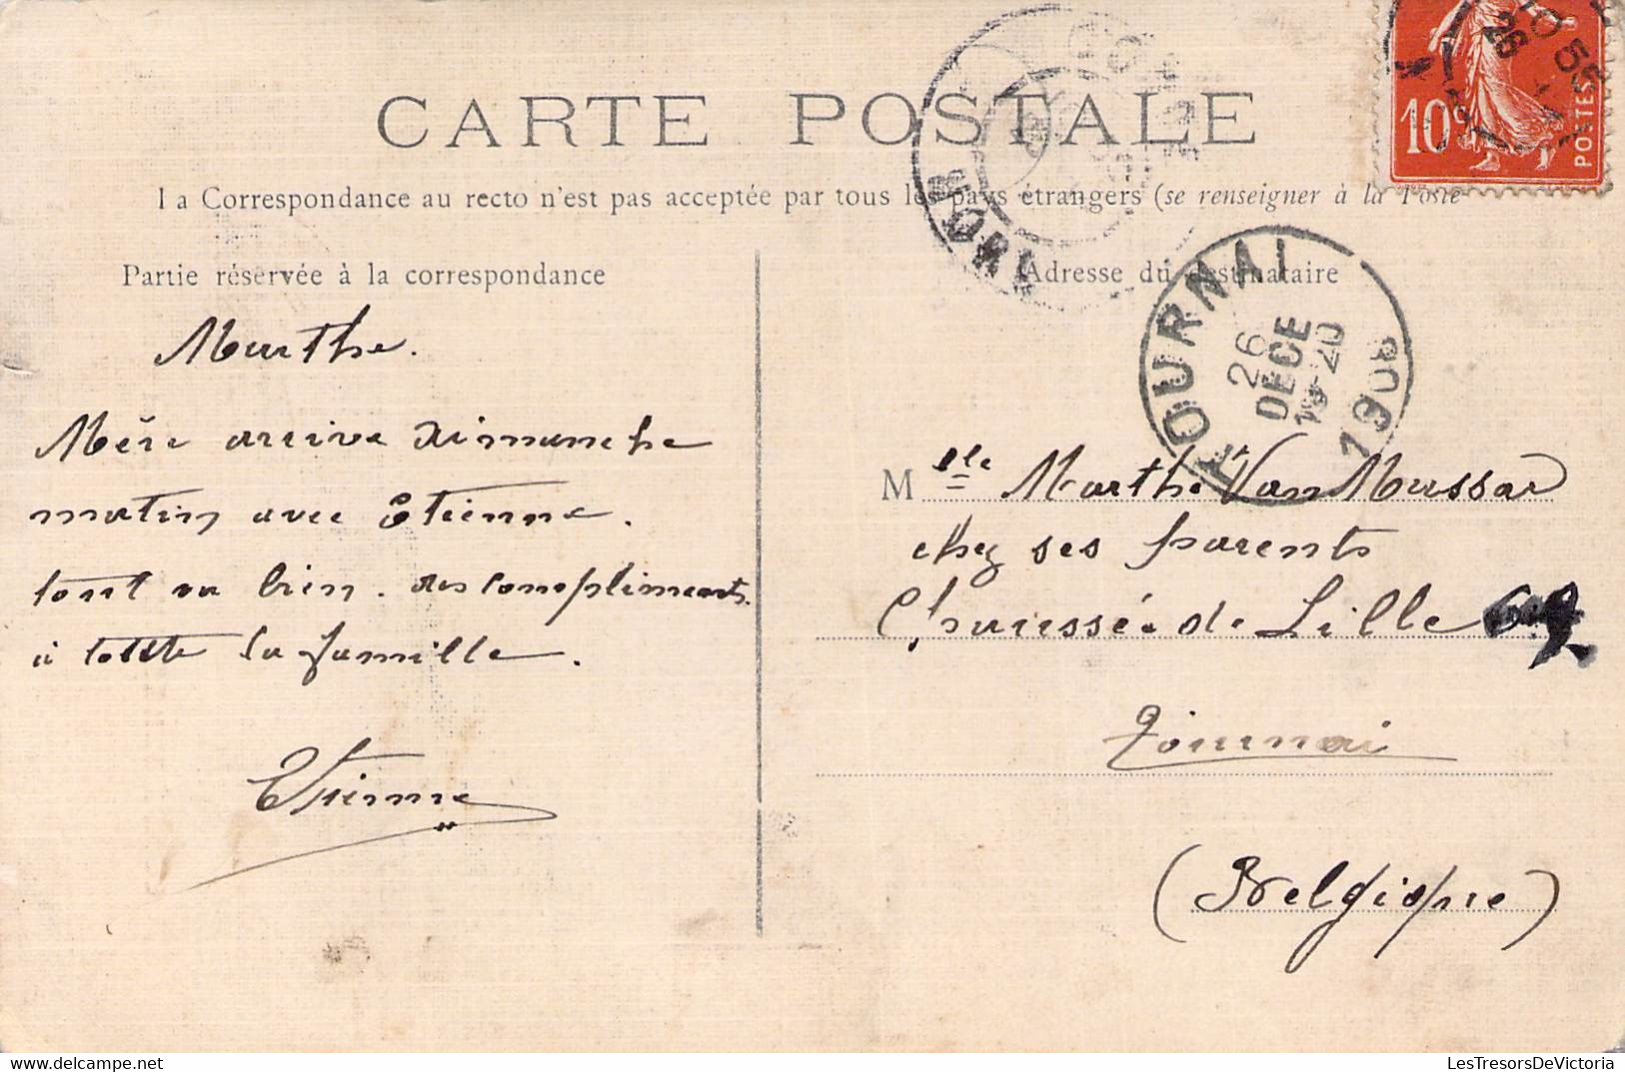 CARTE POSTALE
La Correspondance au recto n'est pas acceptée par tous les pays étrangers (se renseigner à la Poste
Partie réservée à la correspondance
Marthe.
Mère arrive dimanche
matin avec Etienne.
tout va bien. des compliments
à toute la famille.
Etienne
Adresse du destinataire
Mlle Marthe Van
chez ses parents
Chaussée de Lille
Tournai
(Belgique)
10c
POSTES
10 55
26
TOURNAI
26
DECE
1908
LesTresorsDeVictoria
www.delcampe.net